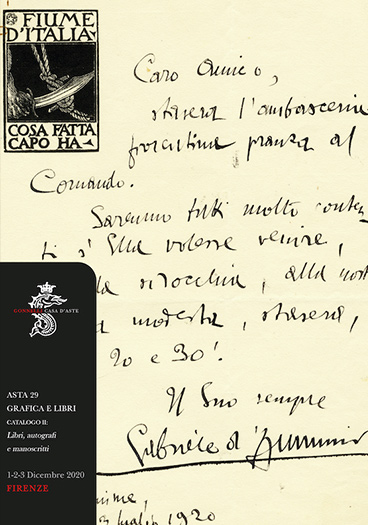 FIUME
D'ITALIA
COSA FATTA
CAPO HA
Caro Amico,
stasera l'ambasceria
fiorentina pranza al
Comando.
Saremo tutti molto conten
ti s'Ella volesse venire,
alla nost
modesta, stasera,
20 e 30'.
Il Suo sempre
Gabriele d'Annunzio
1920
GONNELLI CASA D'ASTE
ASTA 29
GRAFICA E LIBRI
CATALOGO II:
Libri, autografi
e manoscritti
1-2-3 Dicembre 2020
FIRENZE